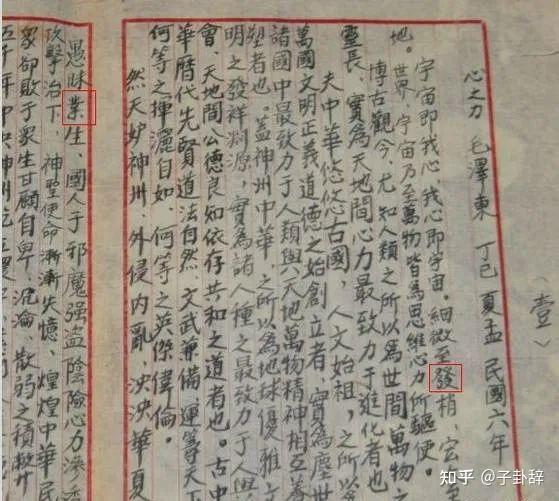 （壹）
心之力 毛澤東 丁巳 夏孟 民國六年
宇宙即我心，我心即宇宙。細微至發梢，宏
地。世界、宇宙乃至萬物皆為思維心力所驅使。
博古觀今，尤知人類之所以為世間萬物
靈長，實為天地間心力最致力于進化者也。
夫中華悠悠古國，人文始祖，之所以
萬國文明正義道德之始創立者，實為塵世
諸國中最致力于人類與天地萬物精神相互養
塑者也。蓋神州中華，之所以為地球優雅文
明之發祥淵源，實為諸人種之最致力于人與
會、天地間公德良知依存共和之道者也。古中
華曆代先賢道法自然，文武兼備，運等天下
何等之揮灑自如，何等之英傑偉倫。
然天妒神州，外侵内亂，泱泱華夏
愚昧業生、國人于邪魔強盗陰險心力滲
攻擊治下，神聖使命漸漸失憶，煌煌中華民
衆卻敗于衆生甘願自卑、混淪、散弱之積
五千年中央神州
知乎 @子卦辞